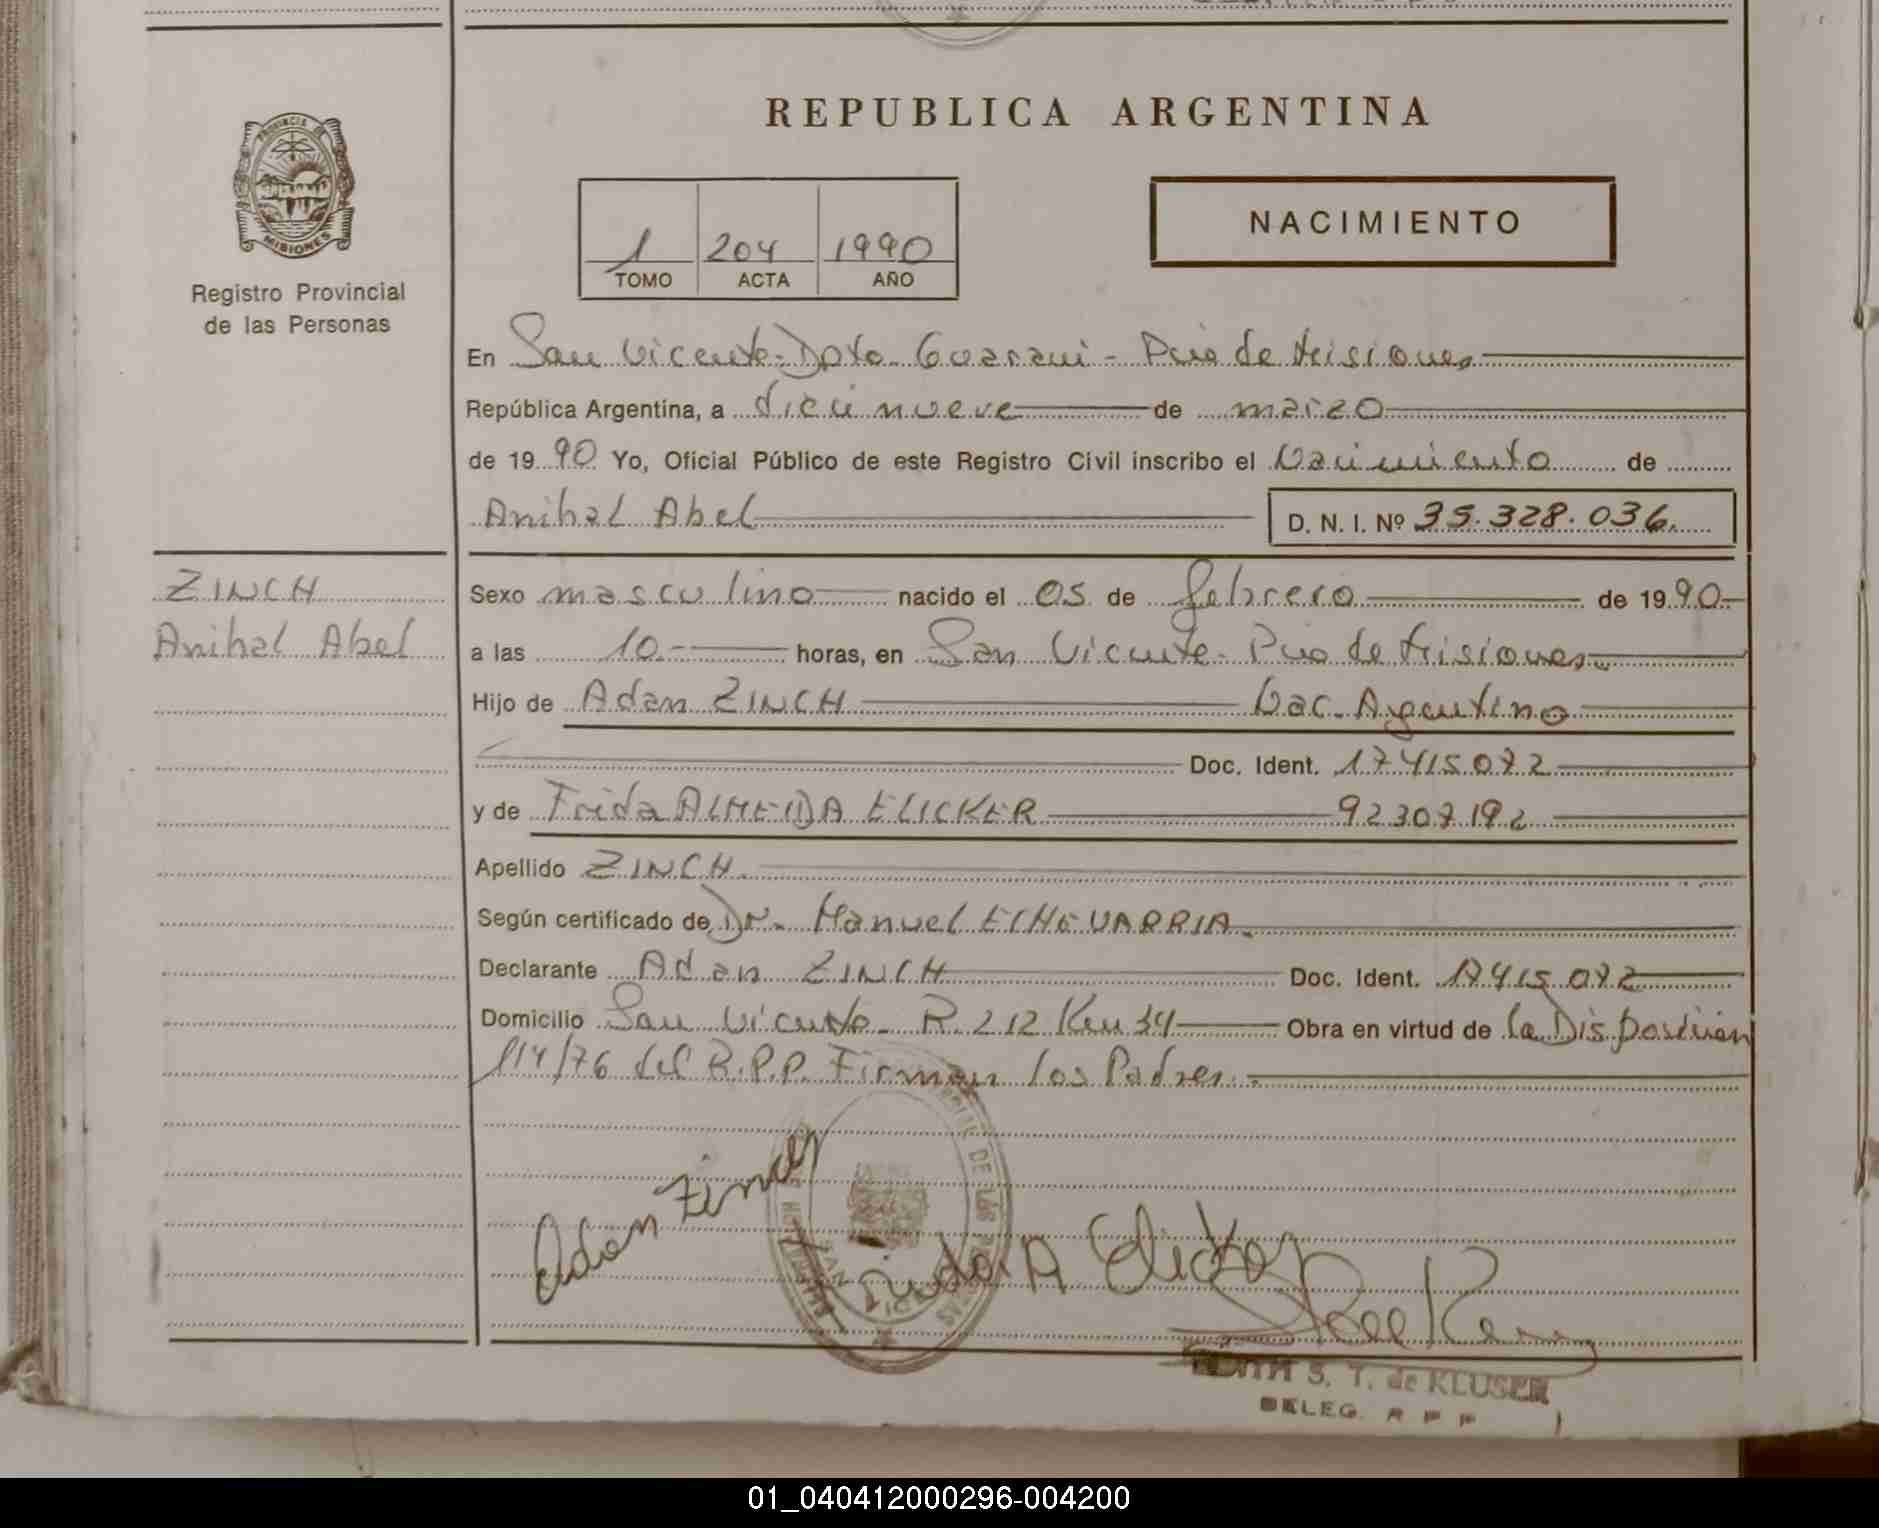 REPUBLICA ARGENTINA
PROVINCIA DE
MISIONES
Registro Provincial
de las Personas
1 204 1990
TOMO ACTA AÑO
NACIMIENTO
En San Vicente - Dpto. Guarani - Pcia de Misiones
República Argentina, a dieci nueve de marzo
de 1990 Yo, Oficial Público de este Registro Civil inscribo el Nacimiento de
Anibal Abel D. N. I. Nº 35.328.036.
ZINCH
Anibal Abel
Sexo masculino nacido el 05 de febrero de 1990
a las 10.- horas, en San Vicente - Pcia de Misiones
Hijo de Adan ZINCH Nac. Argentino
Doc. Ident. 17415072
y de Frida ALMEIDA ELICKER 92307192
Apellido ZINCH.
Según certificado de Dr. Manuel ECHEVARRIA.
Declarante Adan ZINCH Doc. Ident. 17415072
Domicilio San Vicente - R. 212 Km 34 Obra en virtud de la Disposición
114/76 del R.P.P. Firman los Padres.
Adan Zinch
Frida A Elicker
S. T. de KLUSER
DELEG. R P P
01_040412000296-004200